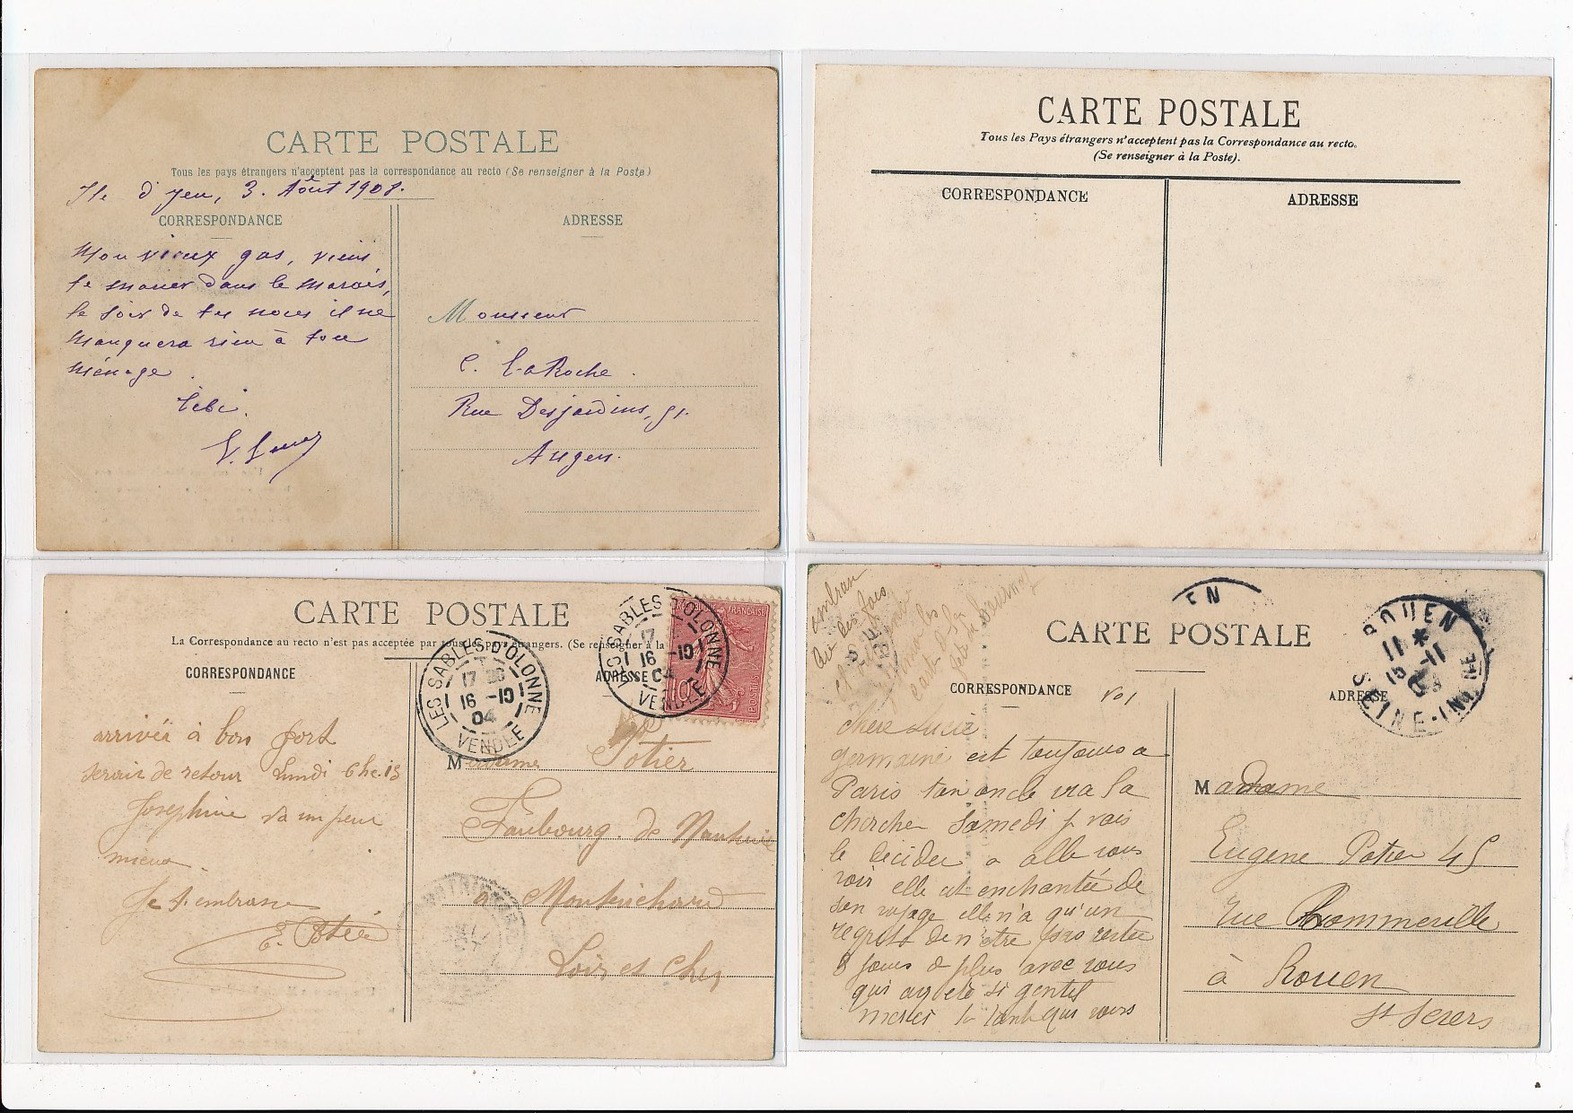 CARTE POSTALE
Tous les pays étrangers n'acceptent pas la correspondance au recto (Se renseigner à la Poste)
Ile d'Yeu, 3. Août 1908.
CORRESPONDANCE
ADRESSE
Mon vieux gas, viens
te marier dans le Marais,
le soir de tes noces il ne
manquera rien à ton
ménage.
Tibi.
Monsieur
C. LaRoche.
Rue Desjardins, 91.
Angers.
CARTE POSTALE
Tous les Pays étrangers n'acceptent pas la Correspondance au recto.
(Se renseigner à la Poste).
CORRESPONDANCE
ADRESSE
CARTE POSTALE
La Correspondance au recto n'est pas acceptée par tous les pays étrangers. (Se renseigner à la
CORRESPONDANCE
ADRESSE
LES SABLES D'OLONNE
16 -10
04
VENDÉE
LES SABLES D'OLONNE
17
16 -10
04
VENDÉE
FRANÇAISE
10
POSTES
arrivée à bon port
serais de retour Lundi 6 he. 15
Josephine va un peu
mieux
Je t'embrasse
E. Potier
Madame Potier
Faubourg de Nanteuil
à Montrichard
Loir et Cher
CARTE POSTALE
CORRESPONDANCE
ADRESSE
EN
ROUEN
11 *
15 -11
SEINE-INFRE
chere Lucie
germaine est toujours a
Paris ton oncle va la
chercher Samedi je vais
le decider a alle vous
voir elle est enchantée de
son voyage elle n'a qu'un
regret de n'etre pas restée
8 jours de plus avec vous
qui avez été si gentil
merci
Madame
Eugene Potier 45
rue Brommeville
à Rouen
St Severs